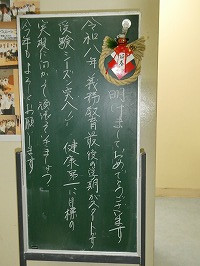 明けましておめでとうございます
令和八年 義務教育最後の学期がスタートです。
受験シーズン突入!! 健康第一に目標の
実現に向かって頑張りましょう
今年もよろしくお願いします